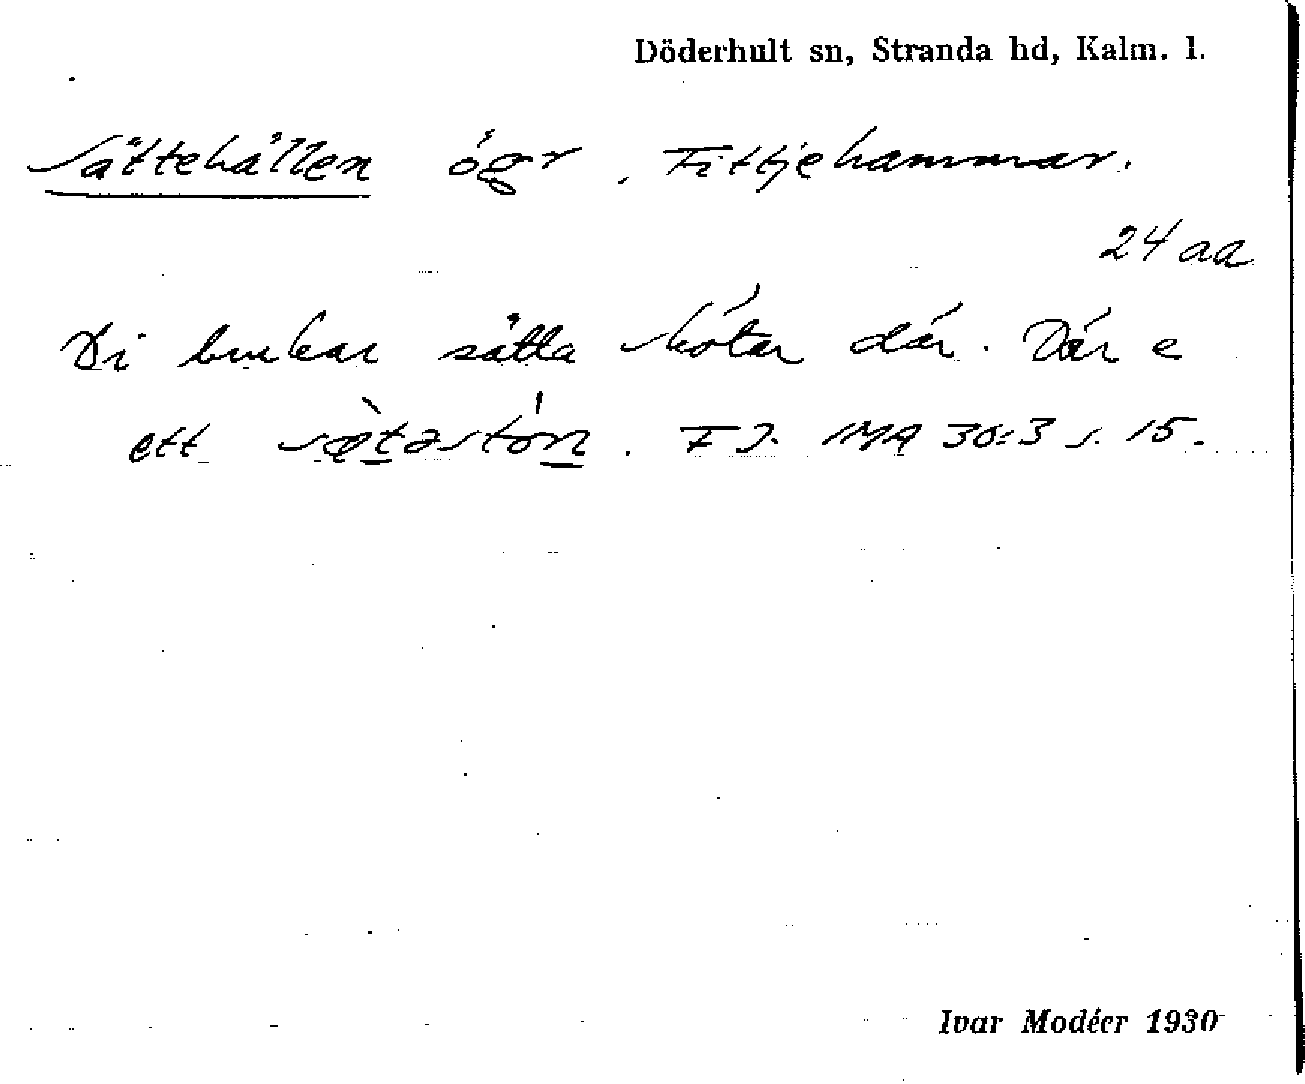 Döderhult sn, Stranda hd, Kalm. l.
Sättehällen ögr. Fittjehammar.
24 aa
Di brukar sätta skötar där. Där e
ett sæ̀təstö́n. F J. IMA 30:3 s. 15.
Ivar Modéer 1930